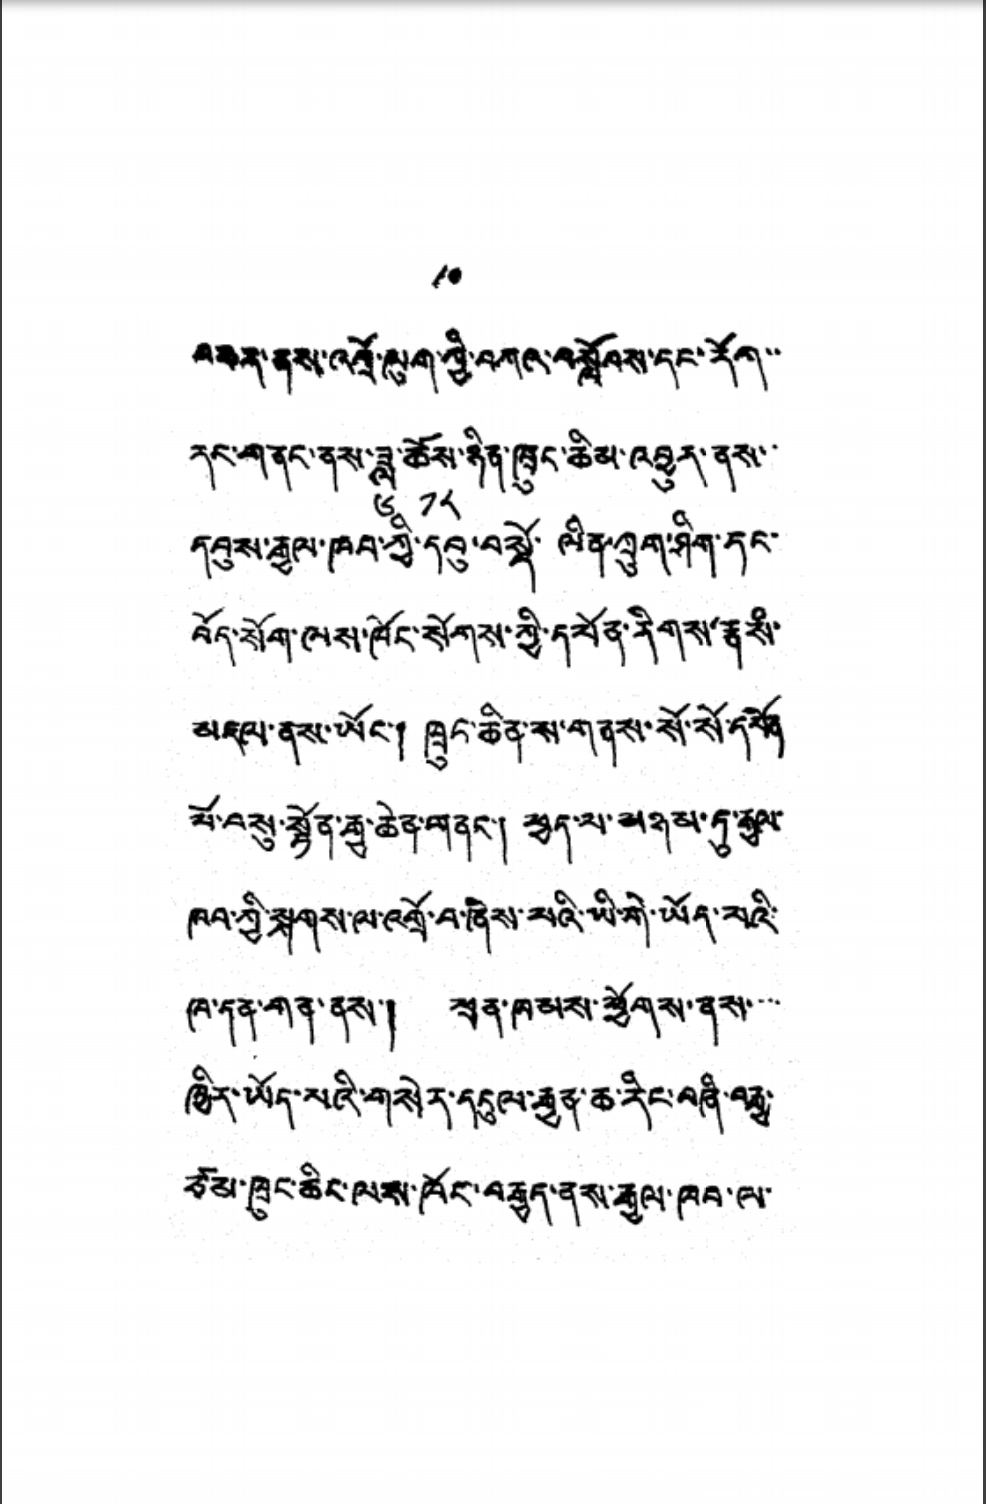 ༡༠
བཅར་ནས་འགྲོ་ལུག་ཀྱི་བཀའ་བསློབས་དང་རོག་
རང་གནང་ནས་ཟླ་ཆོས་ཉིན་ཁྲུང་ཆིམ་འབུར་ནས་
༦ ༡༨
དབུས་རྒྱལ་ཁབ་ཀྱི་དབུ་བསྡོ་ ལིན་ཀྲུག་ཤིག་དང་
བོད་སོག་ལས་ཁོང་སོགས་ཀྱི་དཔོན་རིགས་རྣམས་
མཇལ་ནས་ཡོང་། ཁྲུང་ཆིན་ས་གནས་སོ་སོ་དཔོན་
པོ་བསུ་སྟོན་རྒྱ་ཆེན་གནང་། ཕྱད་པ་མཉམ་དུ་རྒྱལ་
ཁབ་ཀྱི་སྐགས་ལ་འགྲོ་བ་ཞེས་པའི་ཡི་གེ་ཡོད་པའི་
ཁ་དན་གན་ནས། ཕྲན་ཁམས་ཕྱོགས་ནས་
ཁྱེར་ཡོད་པའི་གསེར་དངུལ་རྒྱན་ཆ་རིང་བཞི་བརྒྱ་
ཙམ་ཁྲུང་ཆིང་ལས་ཁོང་བརྒྱུད་ནས་རྒྱལ་ཁབ་ལ་